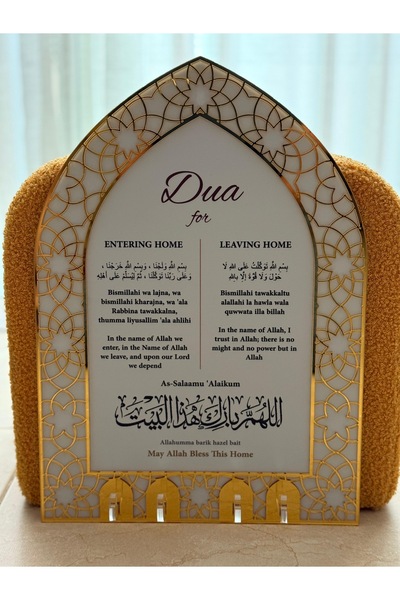 Dua
for
ENTERING HOME
بِسْمِ اللَّهِ وَلَجْنَا ، وَبِسْمِ اللَّهِ خَرَجْنَا ،
وَعَلَى رَبِّنَا تَوَكَّلْنَا ، ثُمَّ لِيُسَلِّمْ عَلَى أَهْلِهِ
Bismillahi wa lajna, wa
bismillahi kharajna, wa 'ala
Rabbina tawakkalna,
thumma liyusallim 'ala ahlihi
In the name of Allah we
enter, in the Name of Allah
we leave, and upon our Lord
we depend
LEAVING HOME
بِسْمِ اللَّهِ تَوَكَّلْتُ عَلَى اللَّهِ لَا
حَوْلَ وَلَا قُوَّةَ إِلَّا بِاللَّهِ
Bismillahi tawakkaltu
alallahi la hawla wala
quwwata illa billah
In the name of Allah, I
trust in Allah; there is no
might and no power but in
Allah
As-Salaamu 'Alaikum
اللهم بارك هذا البيت
Allahumma barik hazel bait
May Allah Bless This Home